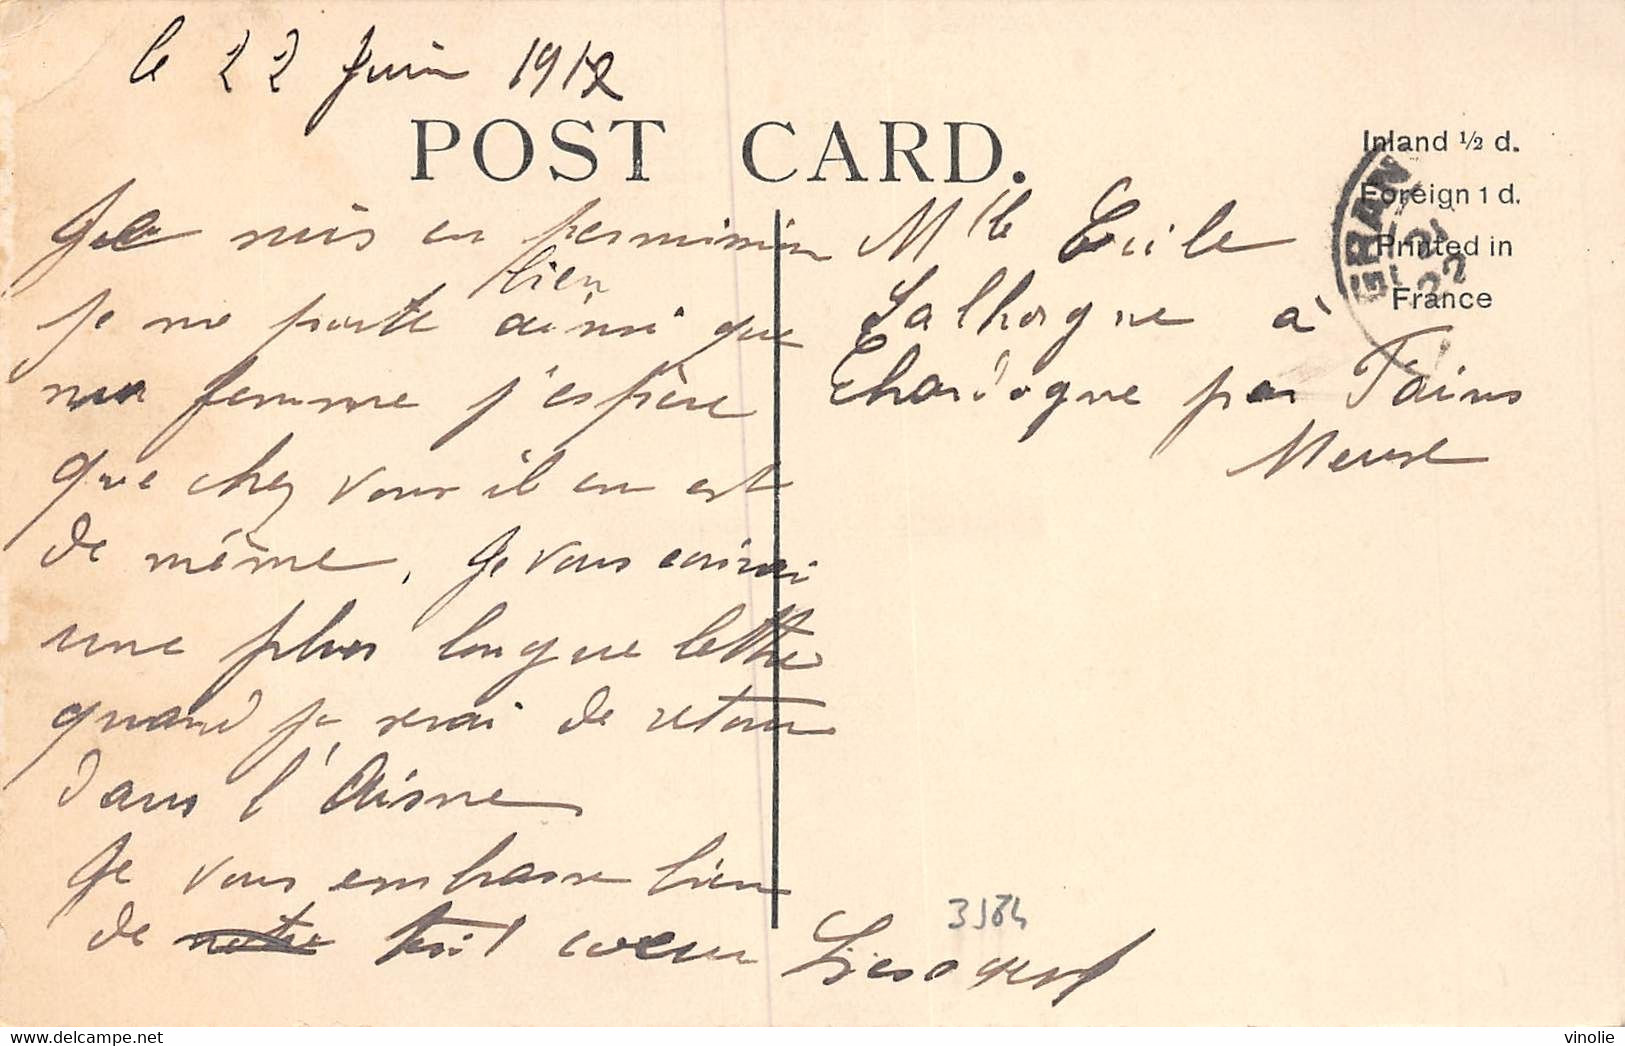 le 22 Juin 1912
POST CARD.
Inland ½ d.
Foreign 1 d.
Printed in
France
GRAN
22
Je suis en permission
je me porte bien ainsi que
ma femme j'espère
que chez vous il en est
de même, Je vous
une plus longue lettre
quand je serai de retour
dans l'Aisne
Je vous embrasse bien
de notre tout coeur
Mlle
à
Chardogne par Fains
Meuse
3584
vinolie